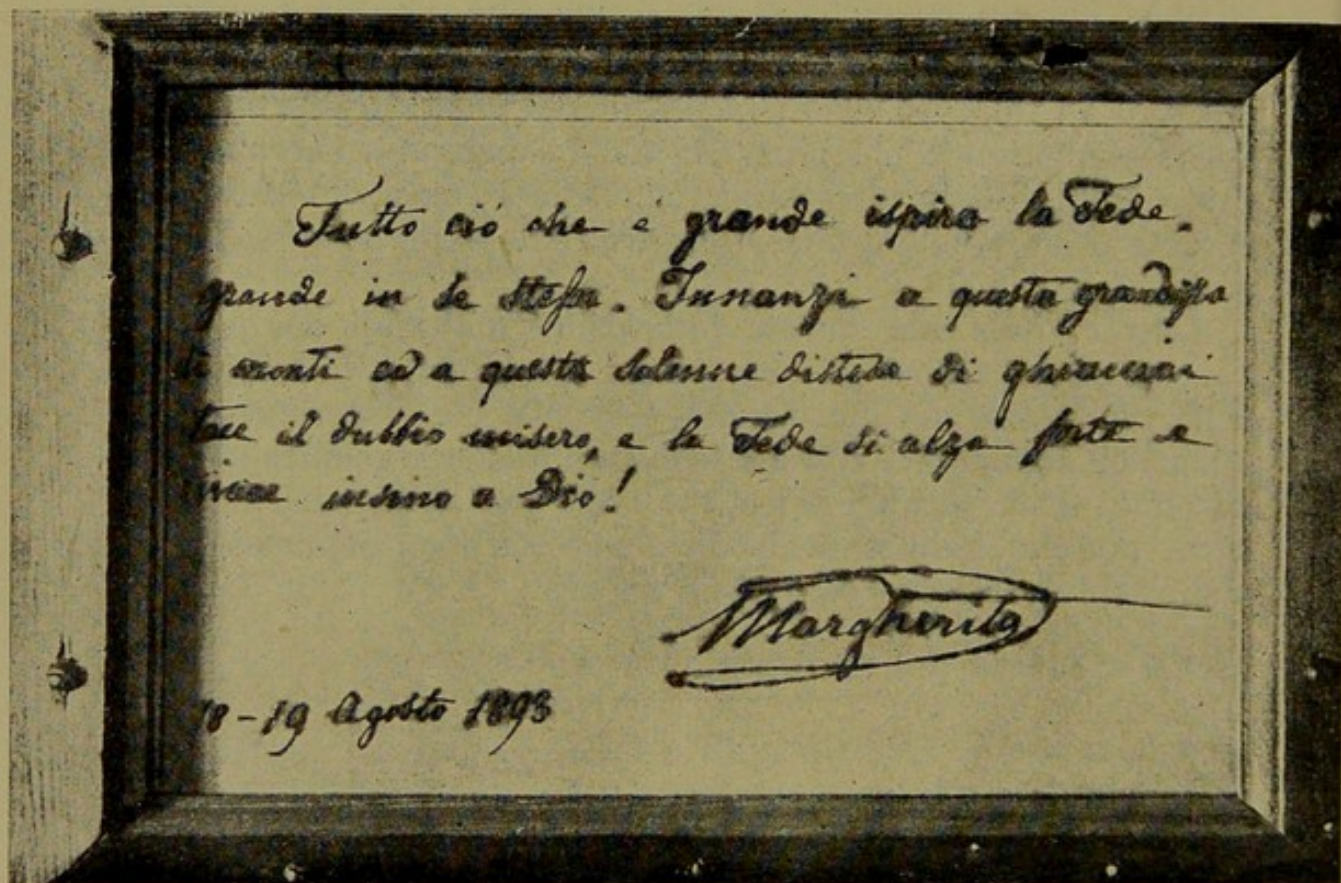 Tutto ciò che è grande ispira la Fede.
grande in se stessa. Innanzi a questa
di monti ed a questa solenne distesa di ghiacciai
tace il dubbio misero, e la Fede si alza forte e
vivace insino a Dio!
Margherita
18-19 Agosto 1893